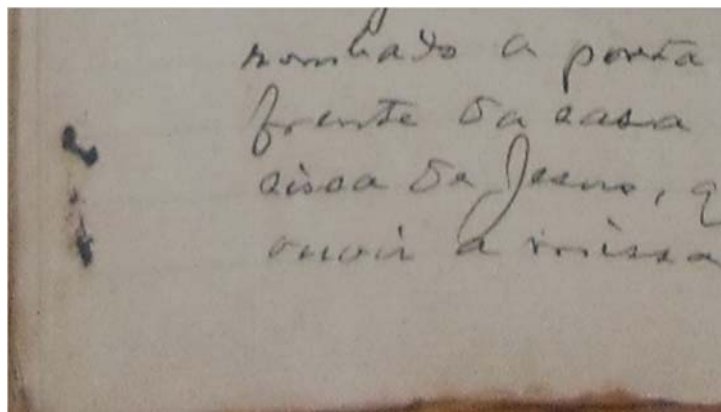 rombado a porta
frente da casa
cisca de Jesus, q
ouvir a missa